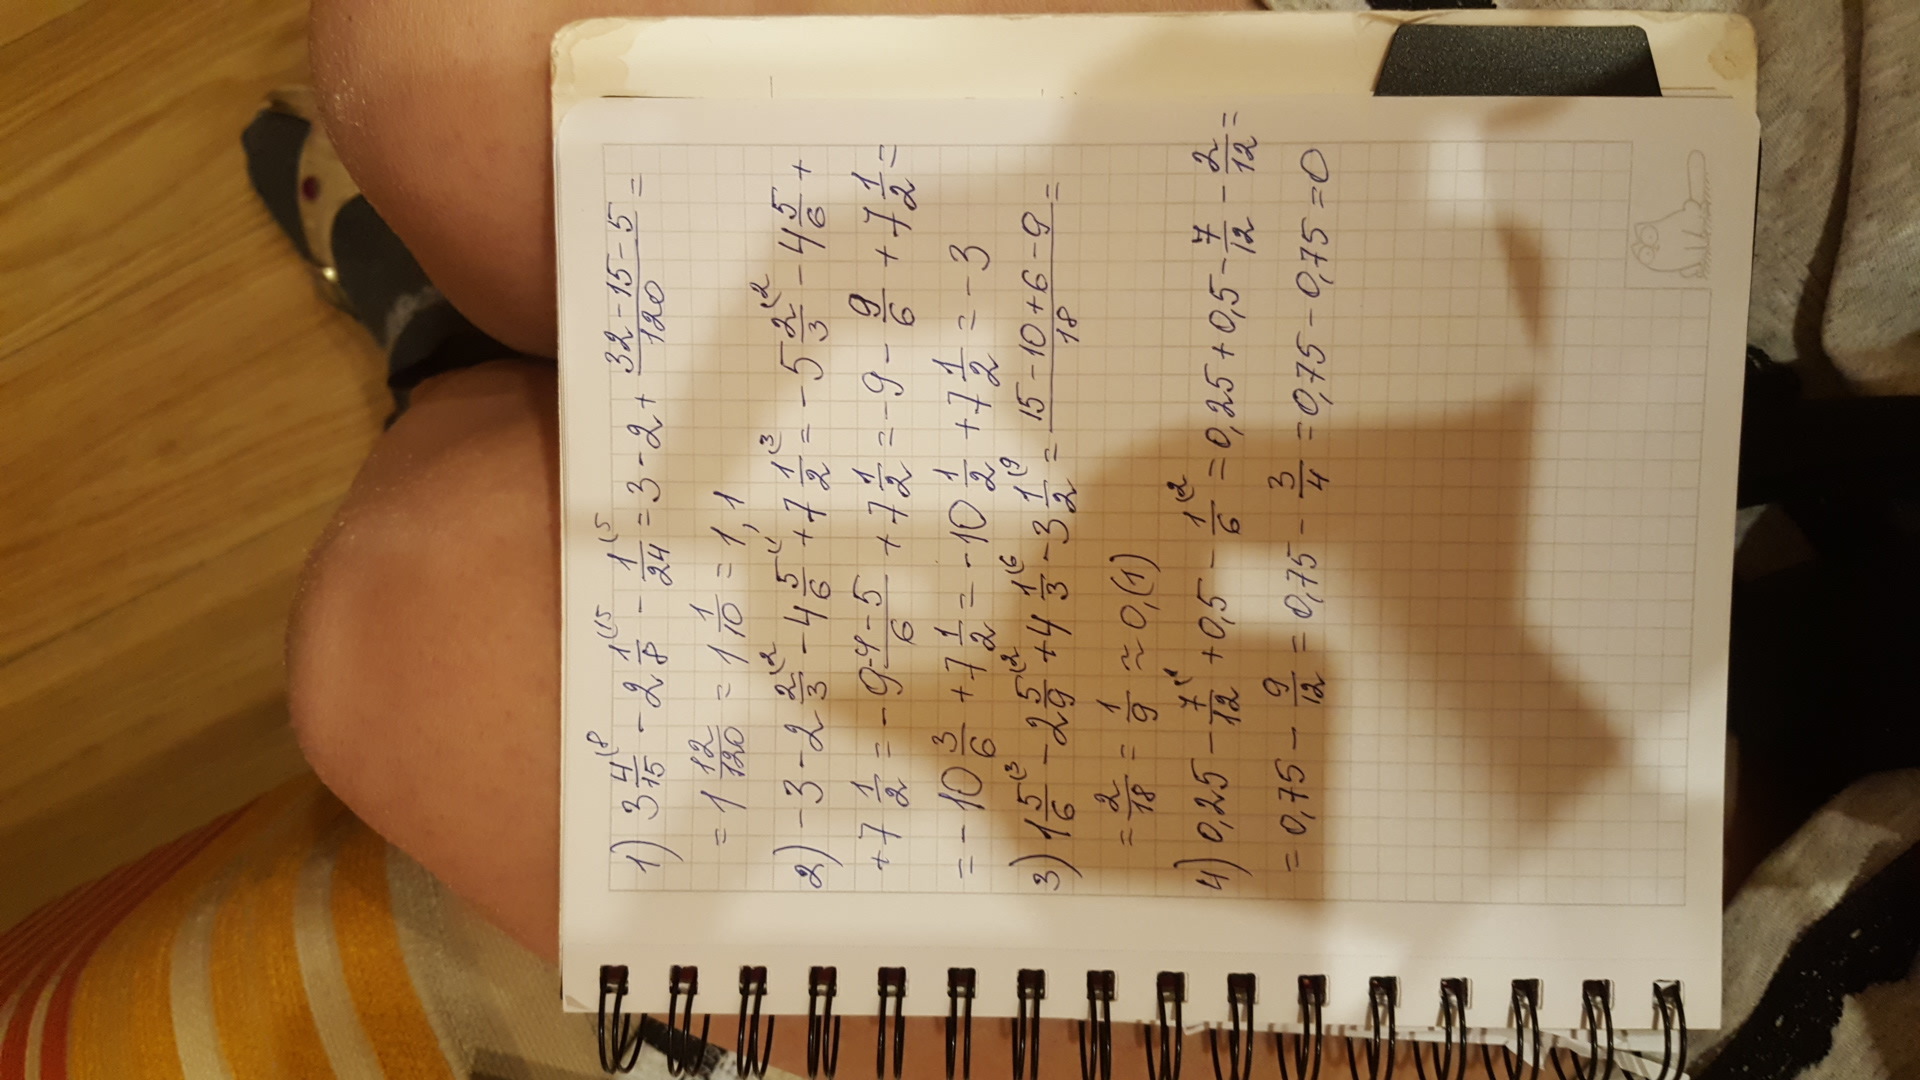 1) 3 4/15 (8 - 2 1/8 (15 - 1/24 (5 = 3 - 2 + (32 - 15 - 5)/120 =
= 1 12/120 = 1 1/10 = 1,1
2) - 3 - 2 2/3 (2 - 4 5/6 (1 + 7 1/2 (3 = - 5 2/3 (2 - 4 5/6 +
+ 7 1/2 = - 9 (-4 - 5)/6 + 7 1/2 = - 9 - 9/6 + 7 1/2 =
= - 10 3/6 + 7 1/2 = - 10 1/2 + 7 1/2 = - 3
3) 1 5/6 (3 - 2 5/9 (2 + 4 1/3 (6 - 3 1/2 (9 = (15 - 10 + 6 - 9)/18 =
= 2/18 = 1/9 ≈ 0,(1)
4) 0,25 - 7/12 (1 + 0,5 - 1/6 (2 = 0,25 + 0,5 - 7/12 - 2/12 =
= 0,75 - 9/12 = 0,75 - 3/4 = 0,75 - 0,75 = 0